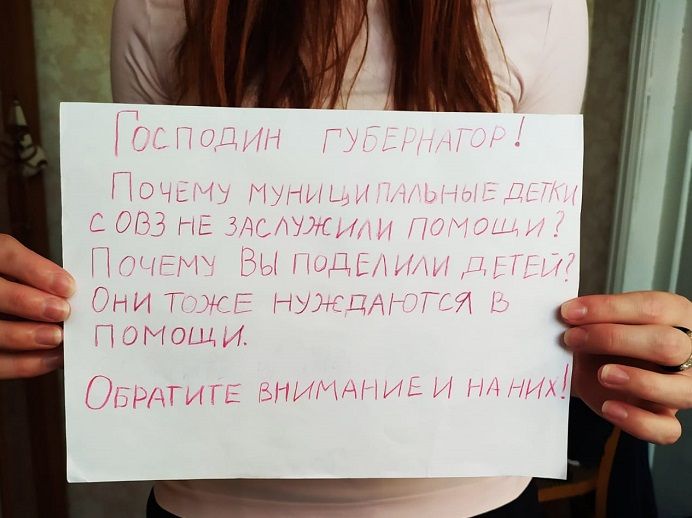 Господин губернатор!
Почему муниципальные детки
с ОВЗ не заслужили помощи?
Почему Вы поделили детей?
Они тоже нуждаются в
помощи.
Обратите внимание и на них!